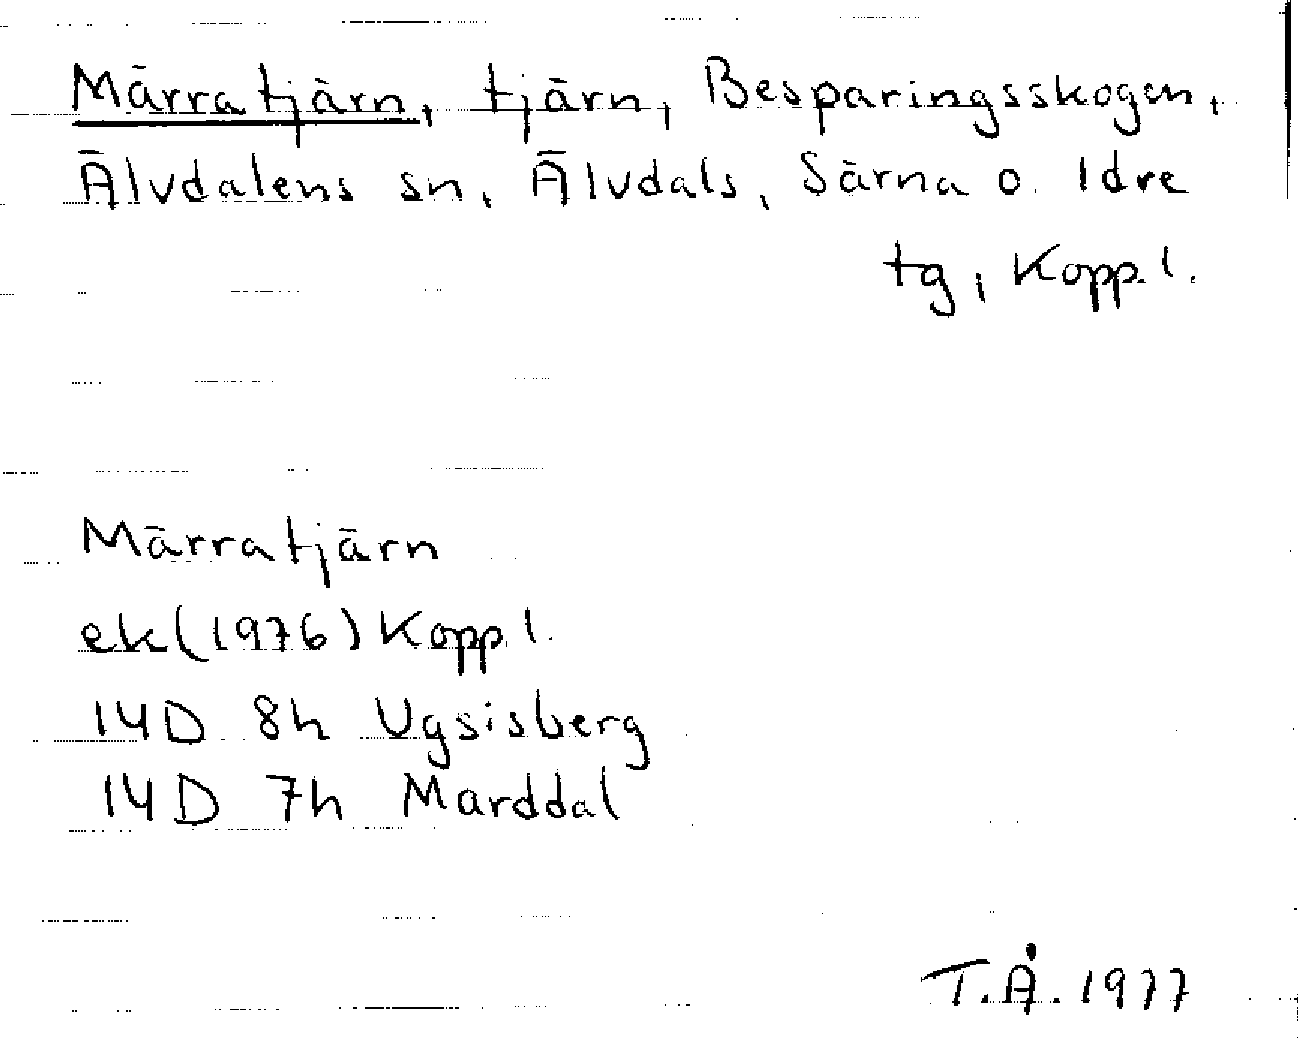 Märratjärn, tjärn, Besparingsskogen,
Älvdalens sn, Älvdals, Särna o. Idre
tg, Kopp. l.
Märratjärn
ek (1976) Kopp l.
14D 8h Ugsisberg
14D 7h Marddal
T.Å. 1977